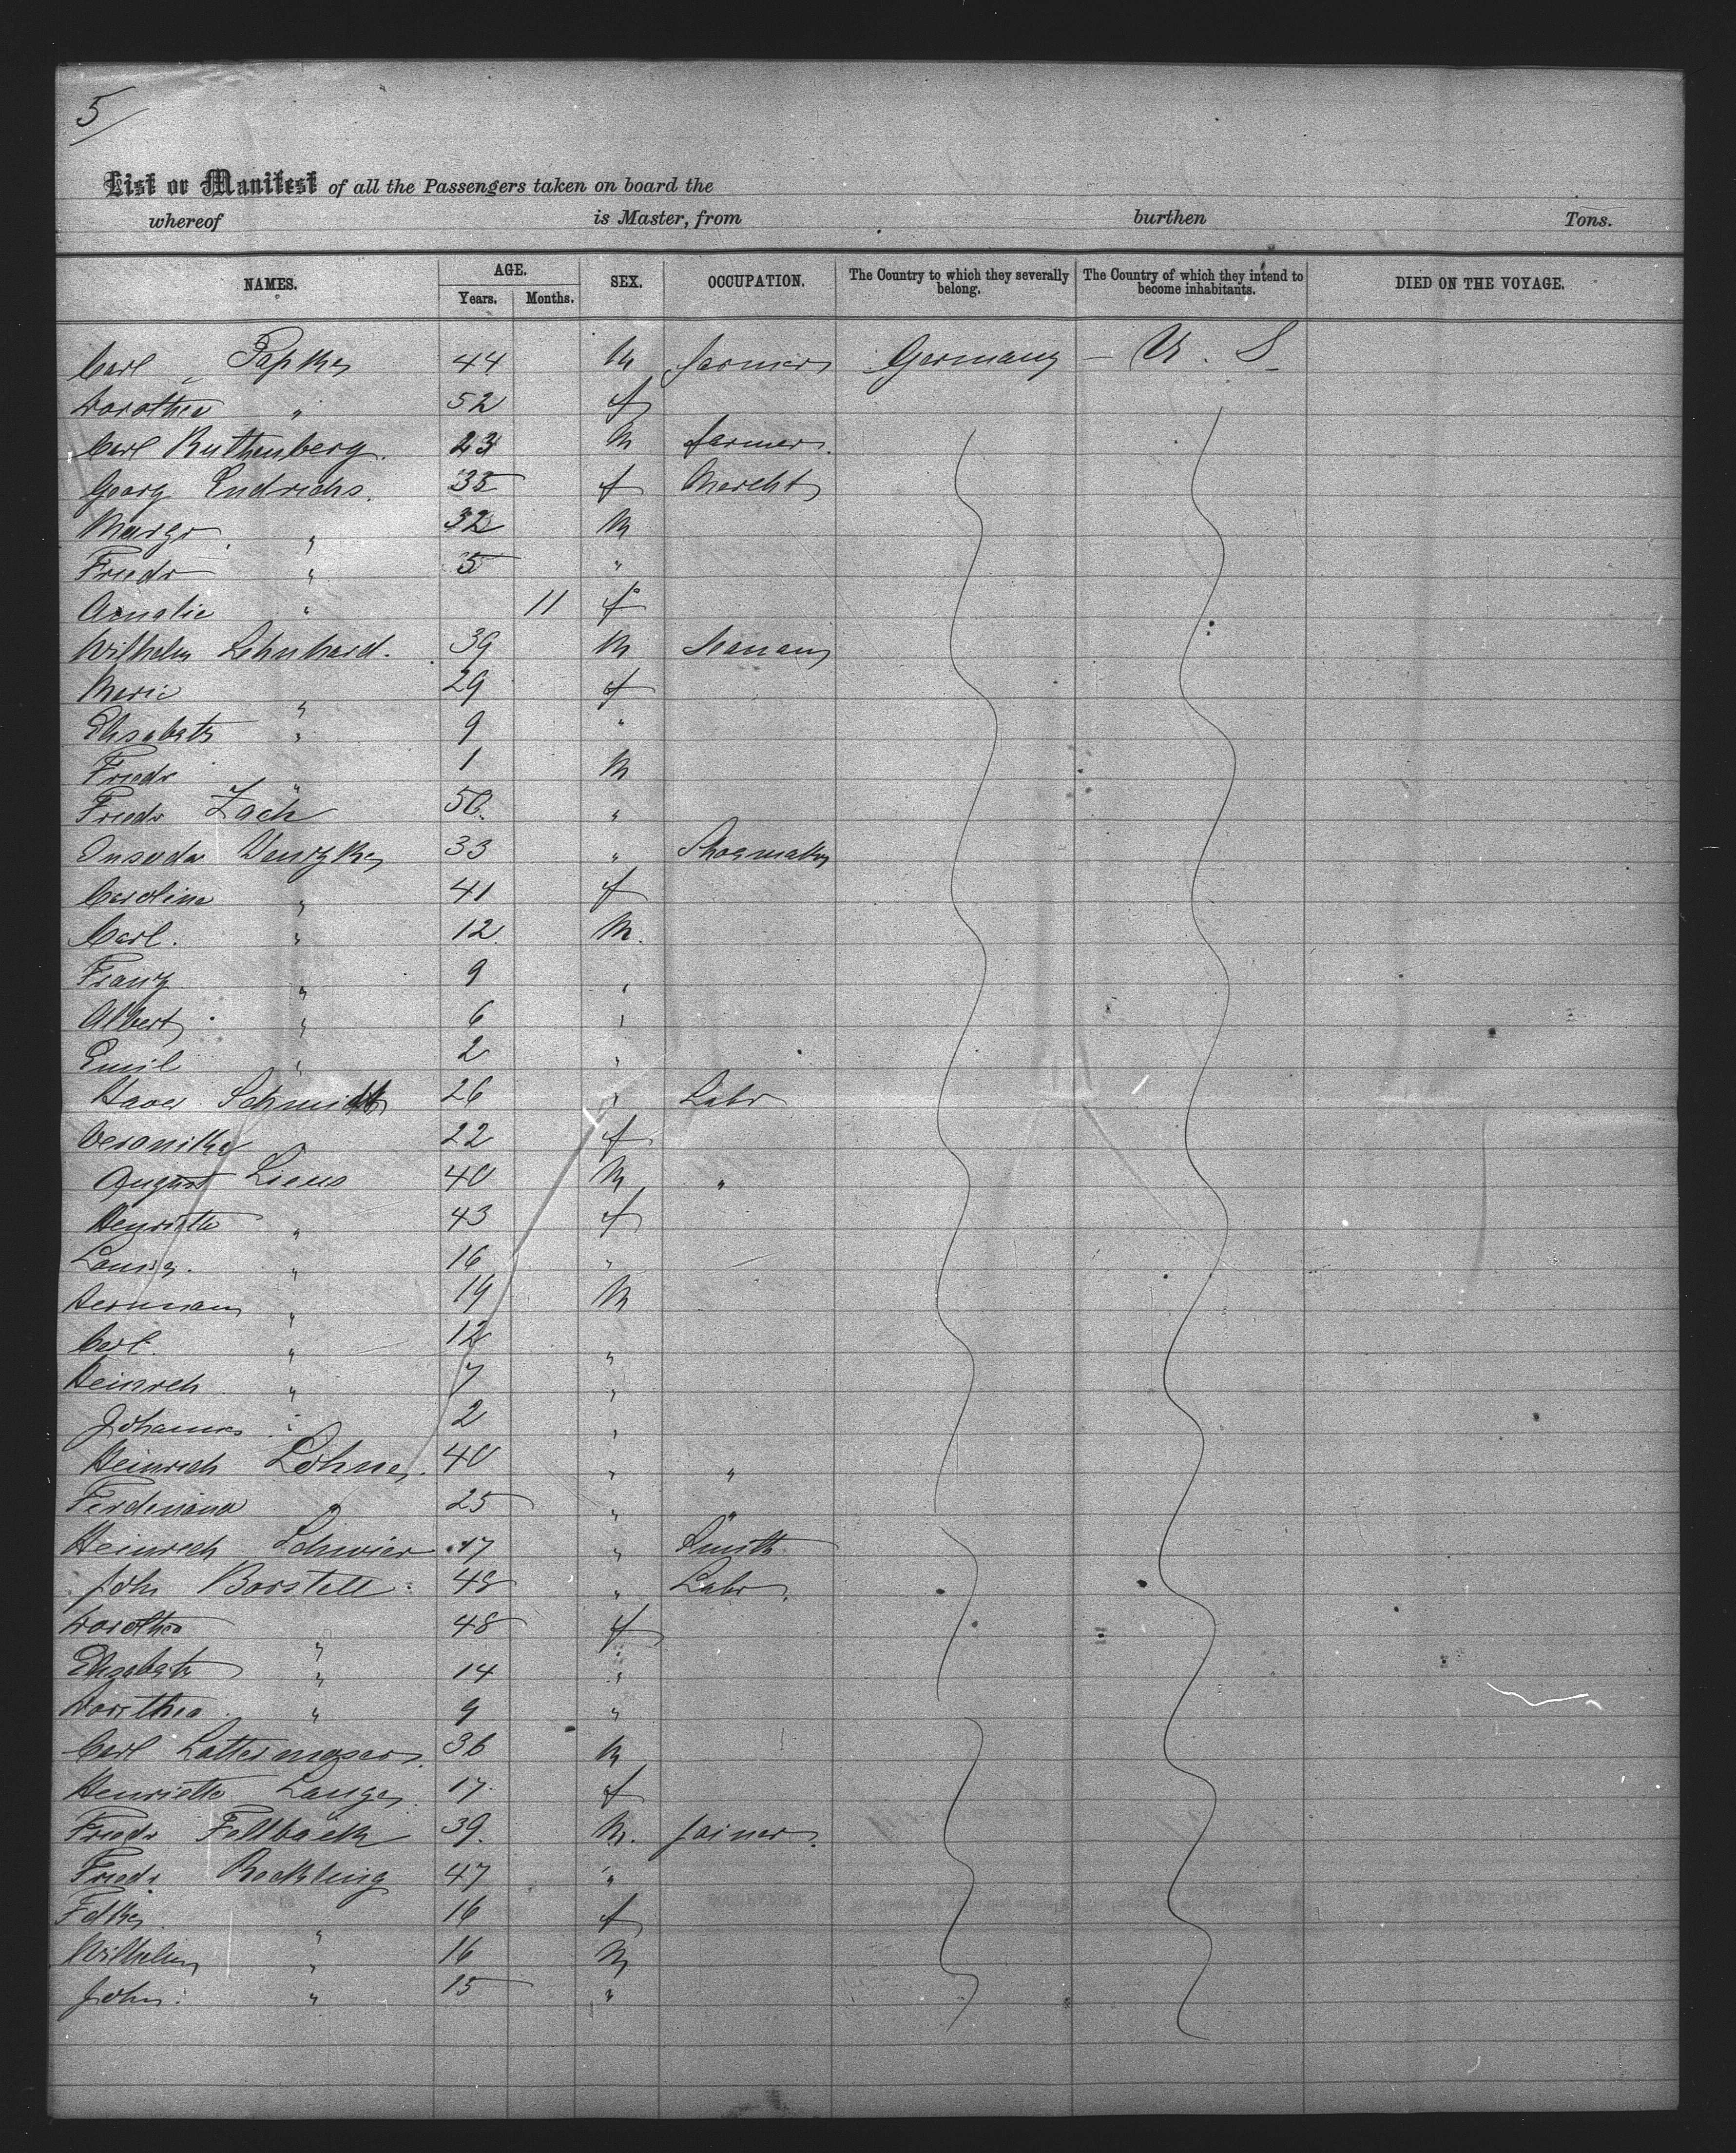 5
List or Manifest of all the Passengers taken on board the
whereof is Master, from burthen Tons.
NAMES. AGE. Years. Months. SEX. OCCUPATION. The Country to which they severally belong. The Country of which they intend to become inhabitants. DIED ON THE VOYAGE.
Carl Papke 44 M farmer Germany - U. S
Dorothea " 52 f
Carl Ruthenberg. 23 M farmer.
Georg Endrichs. 35 f Marcht
Margr " 32 M
Friedr " 5 "
Amalie " 11 f
Wilhelm Lehnhard. 39 M
Marie " 29 f
Elisabeth " 9 "
Friedr " 1 M
Friedr Zach 50. "
33 " Shoemaker
Carolina " 41 f
Carl. " 12 M.
Franz " 9 "
Albert " 6 "
Emil " 2 "
Xaver Schmidt 26 " Labr
Veronika 22 f
August Liens 40 M "
Henriette " 43 f
Louise. " 16 "
Hermann " 19 M
Carl. " 12 "
Heinrich " 7 "
Johannes " 2 "
Heinrich Löhne. 40 " "
Ferdinand " 25 " "
Heinrich Schwier 17 " Smith
John Borstell 48 " Labr.
Dorothea " 48 f
Elizabeth " 14 "
Dorothea " 9 "
Carl Lattermoser. 36 M
Henriette Lange 17. f
Friedr Fellbaek 39. M. joiner.
Friedr Rockling 47 "
" 16 f
Wilhelm " 16 M
John. " 15 "